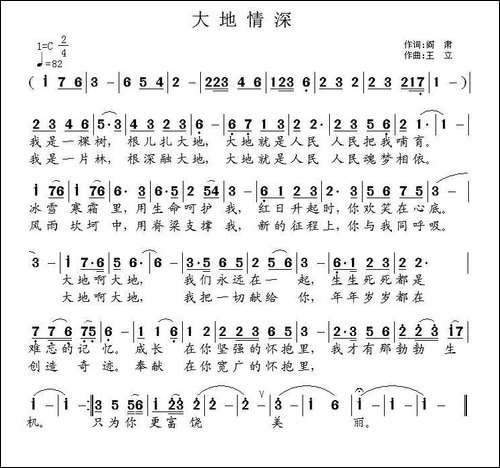 大地情深
1=C 2/4
♩=82
作词:阎 肃
作曲:王 立
我是一棵树, 根儿扎大地, 大地就是人民 人民把我哺育。
我是一片林, 根深融大地, 大地就是人民 人民魂梦相依。
冰雪 寒霜 里, 用生命呵护 我, 红日升起时, 你欢笑在心底。
风雨 坎坷 中, 用脊梁支撑 我, 新的征程上, 你与我同呼吸。
大地啊大地, 我们永远在一 起, 生生死死都是
大地啊大地, 我把一切献给 你, 年年岁岁都在
难忘的记 忆。成长 在你坚强的怀抱里, 我才有那勃勃 生
创造 奇迹。奉献 在你宽广的怀抱里,
机。 只为你更富饶 美 丽。